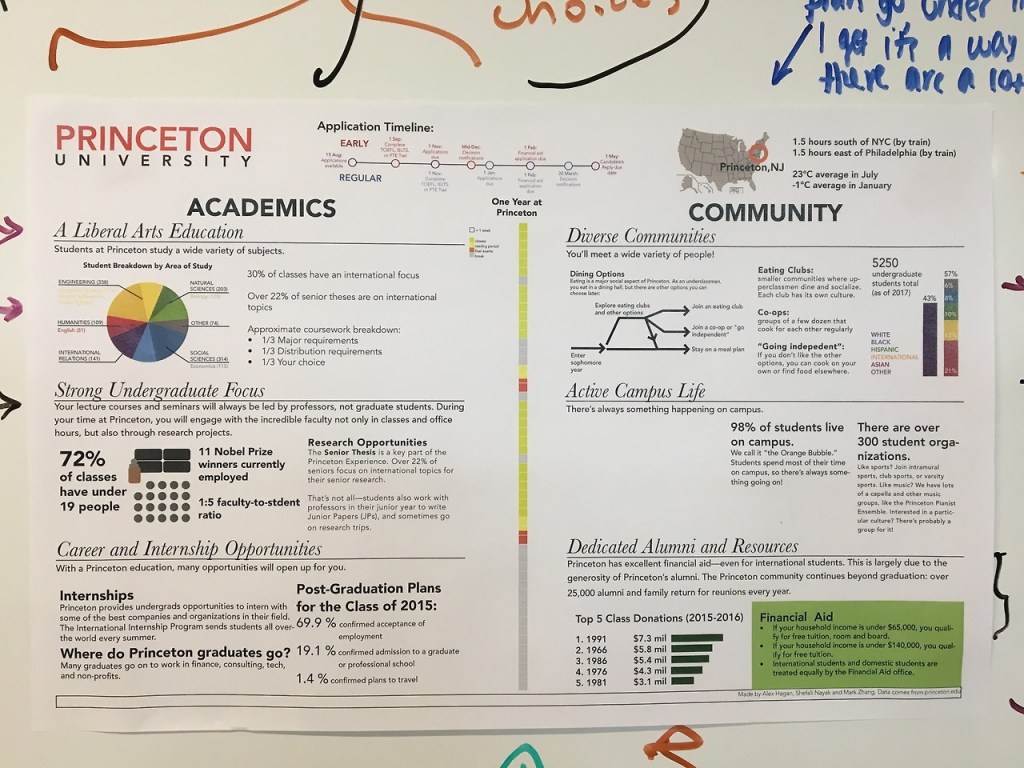 choices
plan go under
I get it's a way
there are a lot
PRINCETON
UNIVERSITY
Application Timeline:
EARLY
15 Aug:
Applications
available
1 Sep:
Complete
TOEFL, IELTS,
or PTE Test
1 Nov:
Applications
due
Mid-Dec:
Decision
notifications
1 Feb:
Financial aid
application
due
1 May:
Candidates
Reply due
date
REGULAR
1 Nov:
Complete
TOEFL, IELTS,
or PTE Test
1 Jan:
Applications
due
1 Feb:
Financial aid
application
due
Decision
notifications
Princeton,NJ
1.5 hours south of NYC (by train)
1.5 hours east of Philadelphia (by train)
23°C average in July
-1°C average in January
ACADEMICS
A Liberal Arts Education
Students at Princeton study a wide variety of subjects.
Student Breakdown by Area of Study
ENGINEERING (338)
NATURAL
SCIENCES (203)
HUMANITIES (109)
English (51)
OTHER (74)
INTERNATIONAL
RELATIONS (141)
SOCIAL
SCIENCES (314)
Economics (115)
30% of classes have an international focus
Over 22% of senior theses are on international
topics
Approximate coursework breakdown:
• 1/3 Major requirements
• 1/3 Distribution requirements
• 1/3 Your choice
Strong Undergraduate Focus
Your lecture courses and seminars will always be led by professors, not graduate students. During
your time at Princeton, you will engage with the incredible faculty not only in classes and office
hours, but also through research projects.
72%
of classes
have under
19 people
11 Nobel Prize
winners currently
employed
1:5 faculty-to-stdent
ratio
Research Opportunities
The Senior Thesis is a key part of the
Princeton Experience. Over 22% of
seniors focus on international topics for
their senior research.
That's not all—students also work with
professors in their junior year to write
Junior Papers (JPs), and sometimes go
on research trips.
Career and Internship Opportunities
With a Princeton education, many opportunities will open up for you.
Internships
Princeton provides undergrads opportunities to intern with
some of the best companies and organizations in their field.
The International Internship Program sends students all over
the world every summer.
Where do Princeton graduates go?
Many graduates go on to work in finance, consulting, tech,
and non-profits.
Post-Graduation Plans
for the Class of 2015:
69.9 % confirmed acceptance of
employment
19.1 % confirmed admission to a graduate
or professional school
1.4 % confirmed plans to travel
One Year at
Princeton
= 1 week
classes
reading period
final exams
break
COMMUNITY
Diverse Communities
You'll meet a wide variety of people!
Dining Options
Eating is a major social aspect of Princeton. As an underclassmen,
you eat in a dining hall, but there are other options you can
choose later:
Explore eating clubs
and other options
Join an eating club
Join a co-op or "go
independent"
Stay on a meal plan
Enter
sophomore
year
Eating Clubs:
smaller communities where up-
perclassmen dine and socialize.
Each club has its own culture.
Co-ops:
groups of a few dozen that
cook for each other regularly
"Going indepedent":
If you don't like the other
options, you can cook on your
own or find food elsewhere.
5250
undergraduate
students total
(as of 2017)
WHITE
BLACK
HISPANIC
INTERNATIONAL
ASIAN
OTHER
43%
57%
8%
10%
21%
Active Campus Life
There's always something happening on campus.
98% of students live
on campus.
We call it "the Orange Bubble."
Students spend most of their time
on campus, so there's always some-
thing going on!
There are over
300 student orga-
nizations.
Like sports? Join intramural
sports, club sports, or varsity
sports. Like music? We have lots
of a capella and other music
groups, like the Princeton Pianist
Ensemble. Interested in a partic-
ular culture? There's probably a
group for it!
Dedicated Alumni and Resources
Princeton has excellent financial aid—even for international students. This is largely due to the
generosity of Princeton's alumni. The Princeton community continues beyond graduation: over
25,000 alumni and family return for reunions every year.
Top 5 Class Donations (2015-2016)
1. 1991 $7.3 mil
2. 1966 $5.8 mil
3. 1986 $5.4 mil
4. 1976 $4.3 mil
5. 1981 $3.1 mil
Financial Aid
• If your household income is under $65,000, you quali-
fy for free tuition, room and board.
• If your household income is under $140,000, you qual-
ify for free tuition.
• International students and domestic students are
treated equally by the Financial Aid office.
Made by Alex Hagan, Shefali Nayak and Mark Zhang. Data comes from princeton.edu